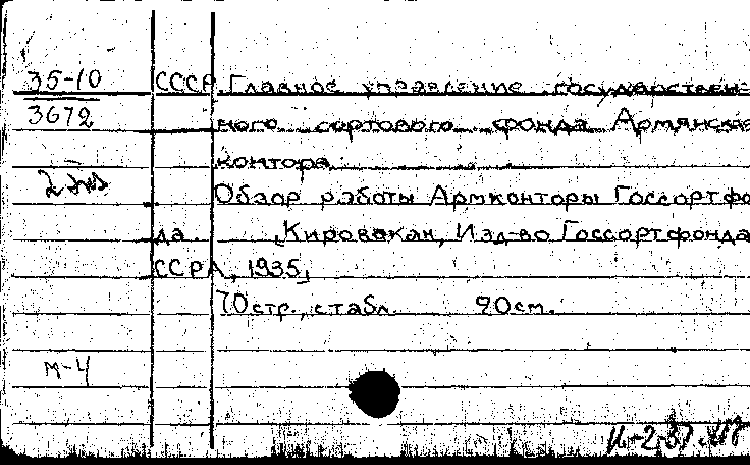 35-10 СССР. Главное управление государствен-
3672 ного сортового фонда Армянская
контора.
2 экз
Обзор работы Армконторы Госсортфо
да [Кировакан, Изд-во Госсортфонда
ССРА, 1935]
70 стр., с табл. 20 см.
м-4